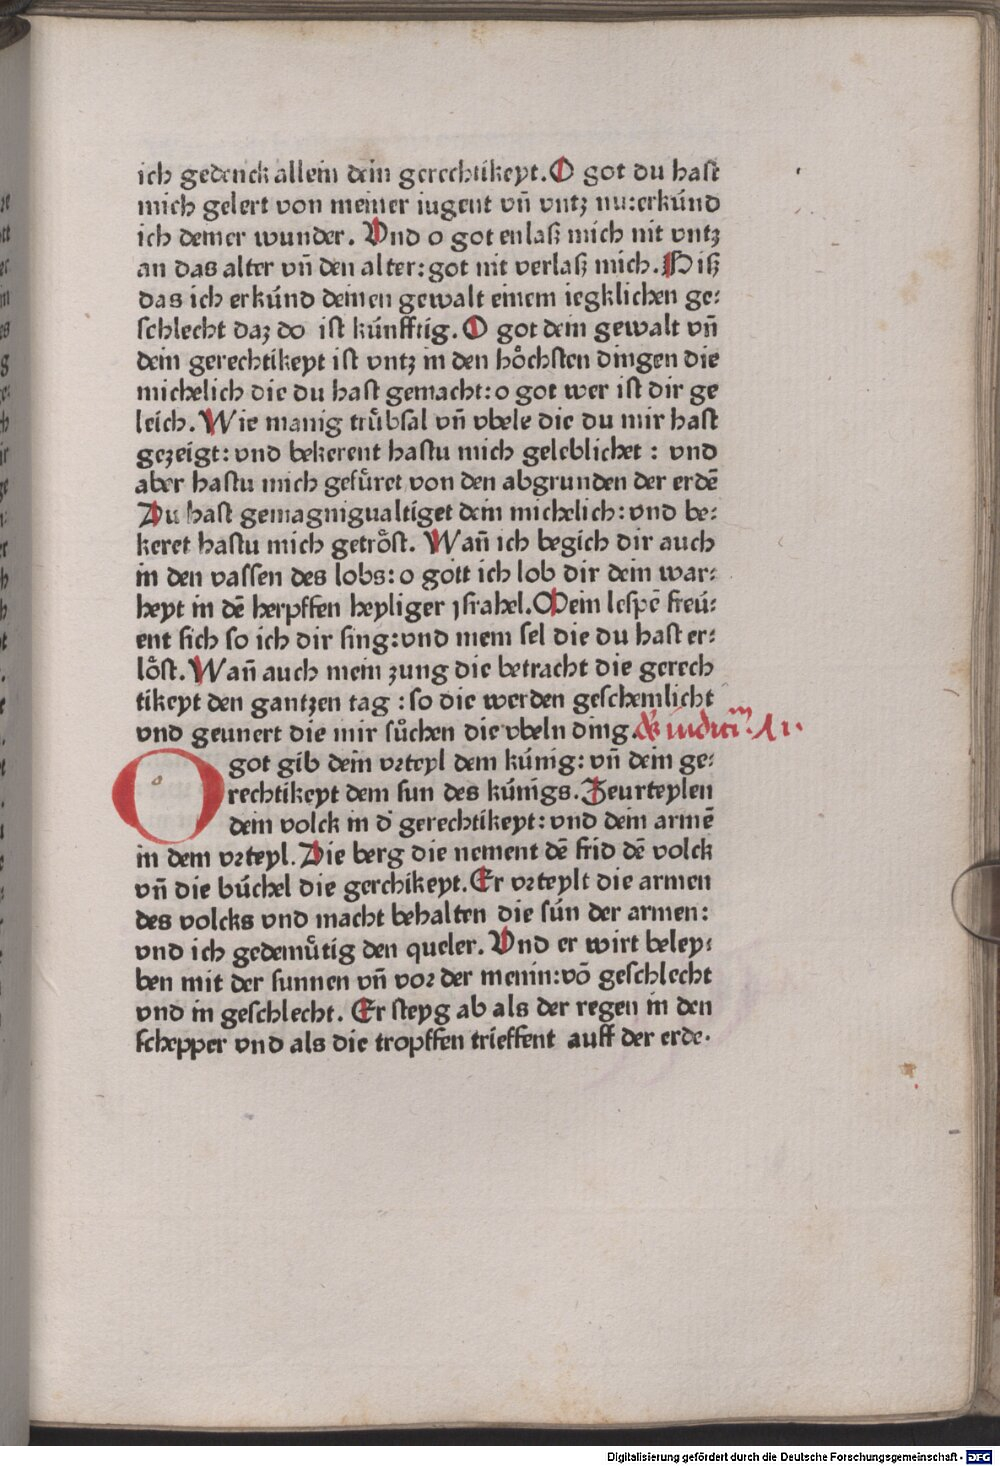 ich gedenck allein dein gerechtikeyt. O got du hast
mich gelert von meiner iugent vn̄ vntz nu: erkúnd
ich deiner wunder. Vnd o got enlaß mich nit vntz
an das alter vn̄ den alter: got nit verlaß mich. Biß
das ich erkúnd deinen gewalt einem iegklichen ge:
schlecht daz do ist kúnfftig. O got dein gewalt vn̄
dein gerechtikeyt ist vntz in den hoͤchsten dingen die
michelich die du hast gemacht: o got wer ist dir ge
leich. Wie manig truͤbsal vn̄ vbele die du mir hast
gezeigt: vnd bekerent hastu mich geleblichet : vnd
aber hastu mich gefuͤret von den abgrunden der erdē
Du hast gemagnigualtiget dein michelich: vnd be:
keret hastu mich getroͤst. Wan̄ ich begich dir auch
in den vassen des lobs: o gott ich lob dir dein war:
heyt in dē herpffen heyliger jsrahel. Mein lespē freú:
ent sich so ich dir sing: vnd mein sel die du hast er:
loͤst. Wan̄ auch mein zung die betracht die gerech
tikeyt den gantzen tag : so die werden geschemlicht
vnd geunert die mir suͦchen die vbeln ding.
O got gib dein vrteyl dem kúnig: vn̄ dein ge:
rechtikeyt dem sun des kúnigs. Zeurteylen
dein volck in d̓ gerechtikeyt: vnd dein armē
in dem vrteyl. Die berg die nement dē frid dē volck
vn̄ die búchel die gerchikeyt. Er vrteylt die armen
des volcks vnd macht behalten die sún der armen:
vnd ich gedemuͤtig den queler. Vnd er wirt beley:
ben mit der sunnen vn̄ vor der menin: vō geschlecht
vnd in geschlecht. Er steyg ab als der regen in den
schepper vnd als die tropffen trieffent auff der erde.
Digitalisierung gefördert durch die Deutsche Forschungsgemeinschaft - DFG